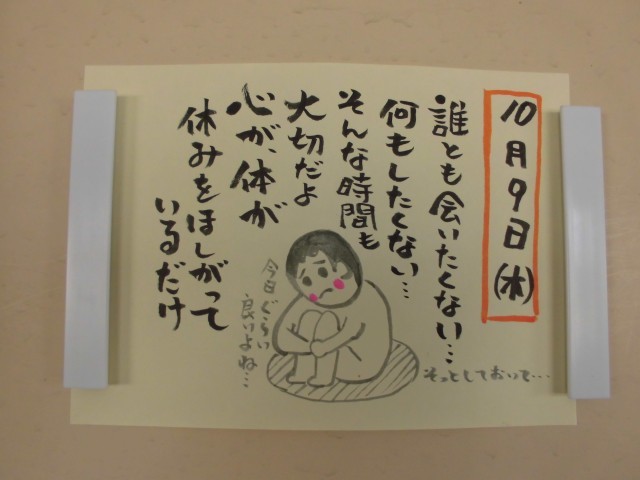 10月9日(木)
誰とも会いたくない…
何もしたくない…
そんな時間も
大切だよ
心が、体が
休みをほしがって
いるだけ
今日ぐらい
良いよね…
そっとしておいて…